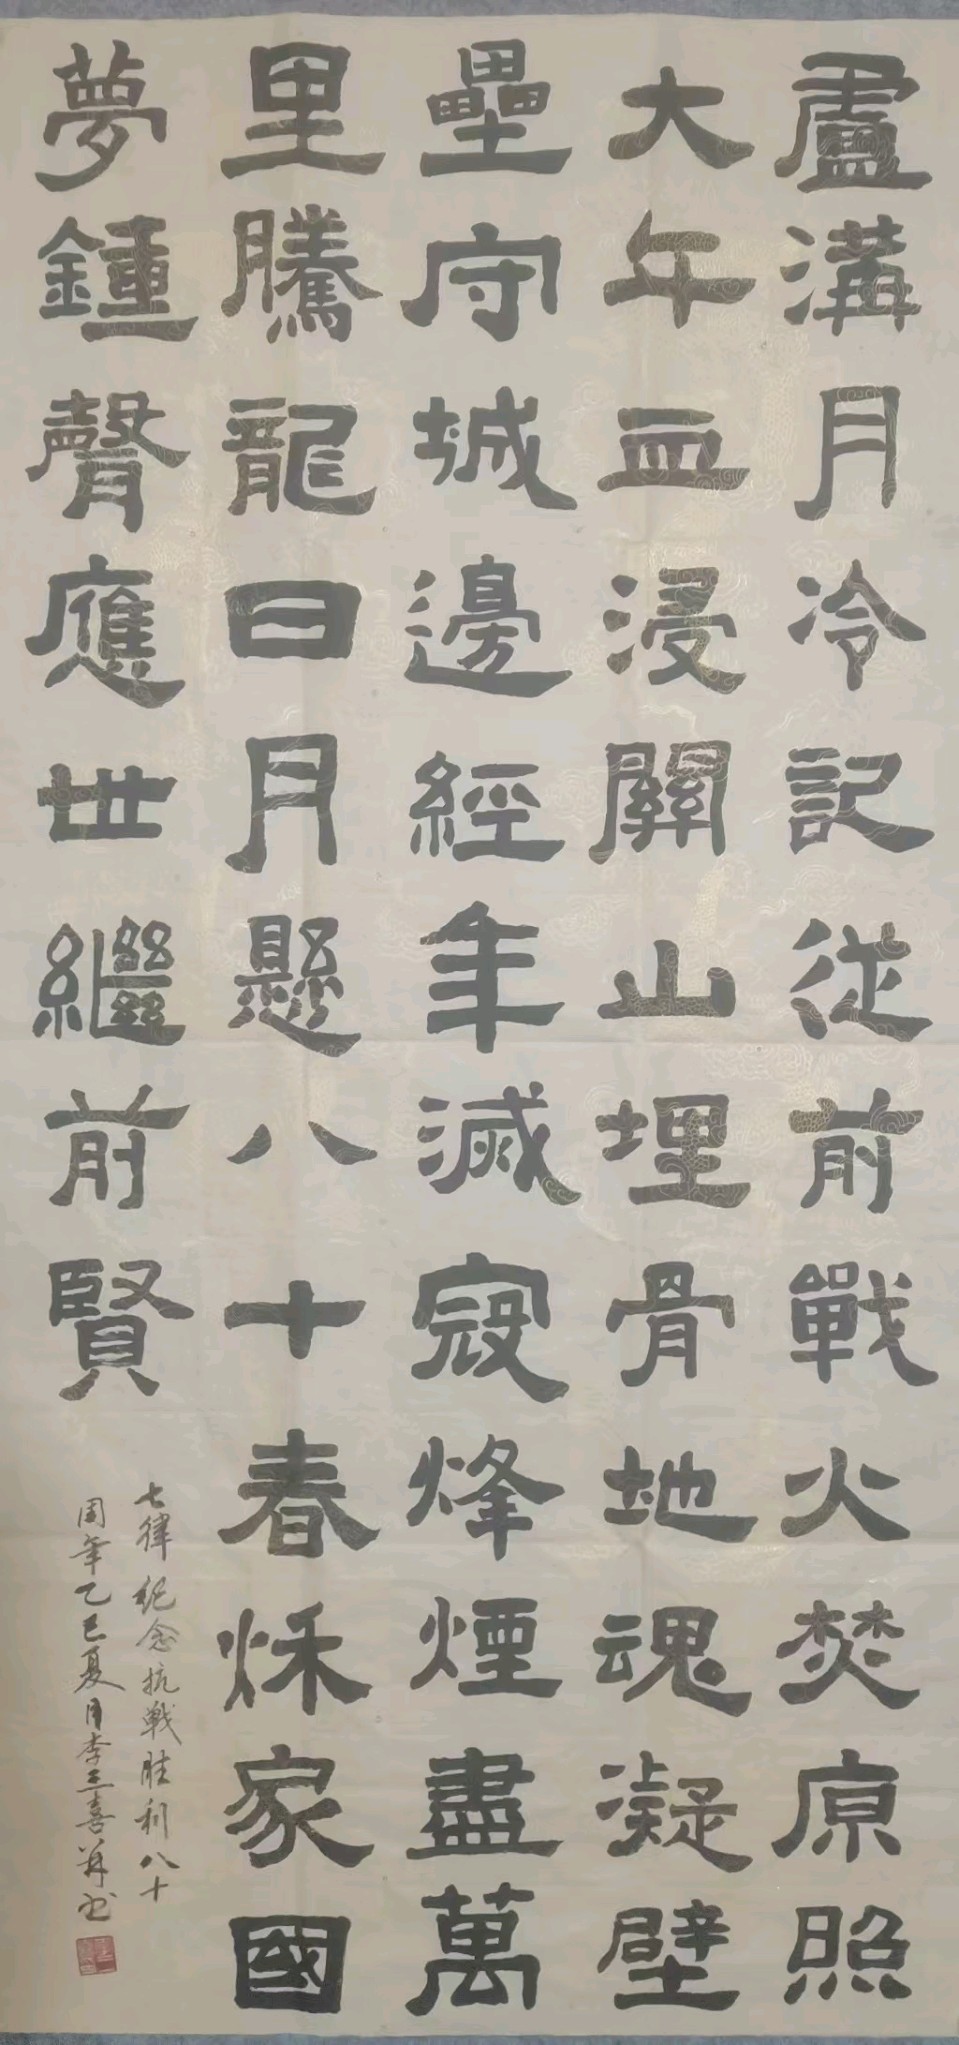 盧溝月冷記從前戰火焚原照
大午血浸關山埋骨地魂凝壁
壘守城邊經年滅寇烽煙盡萬
里騰龍日月懸八十春秌家國
夢鍾聲應世繼前賢
七律 纪念抗戰胜利八十
周年乙巳夏月李三喜并书